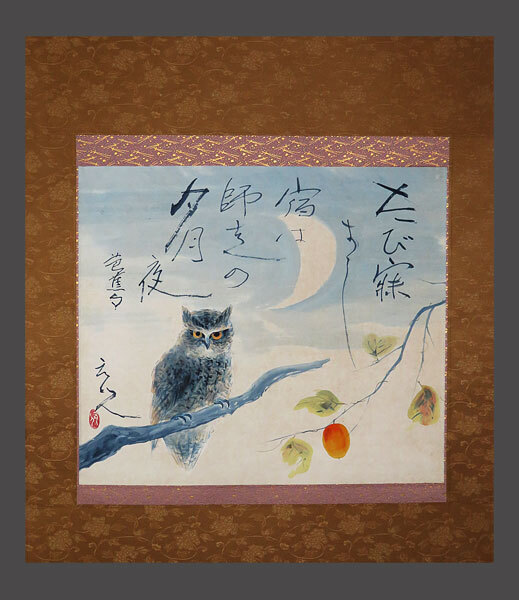 たび寐
よし
宿は
師走の
夕月
夜
芭蕉句